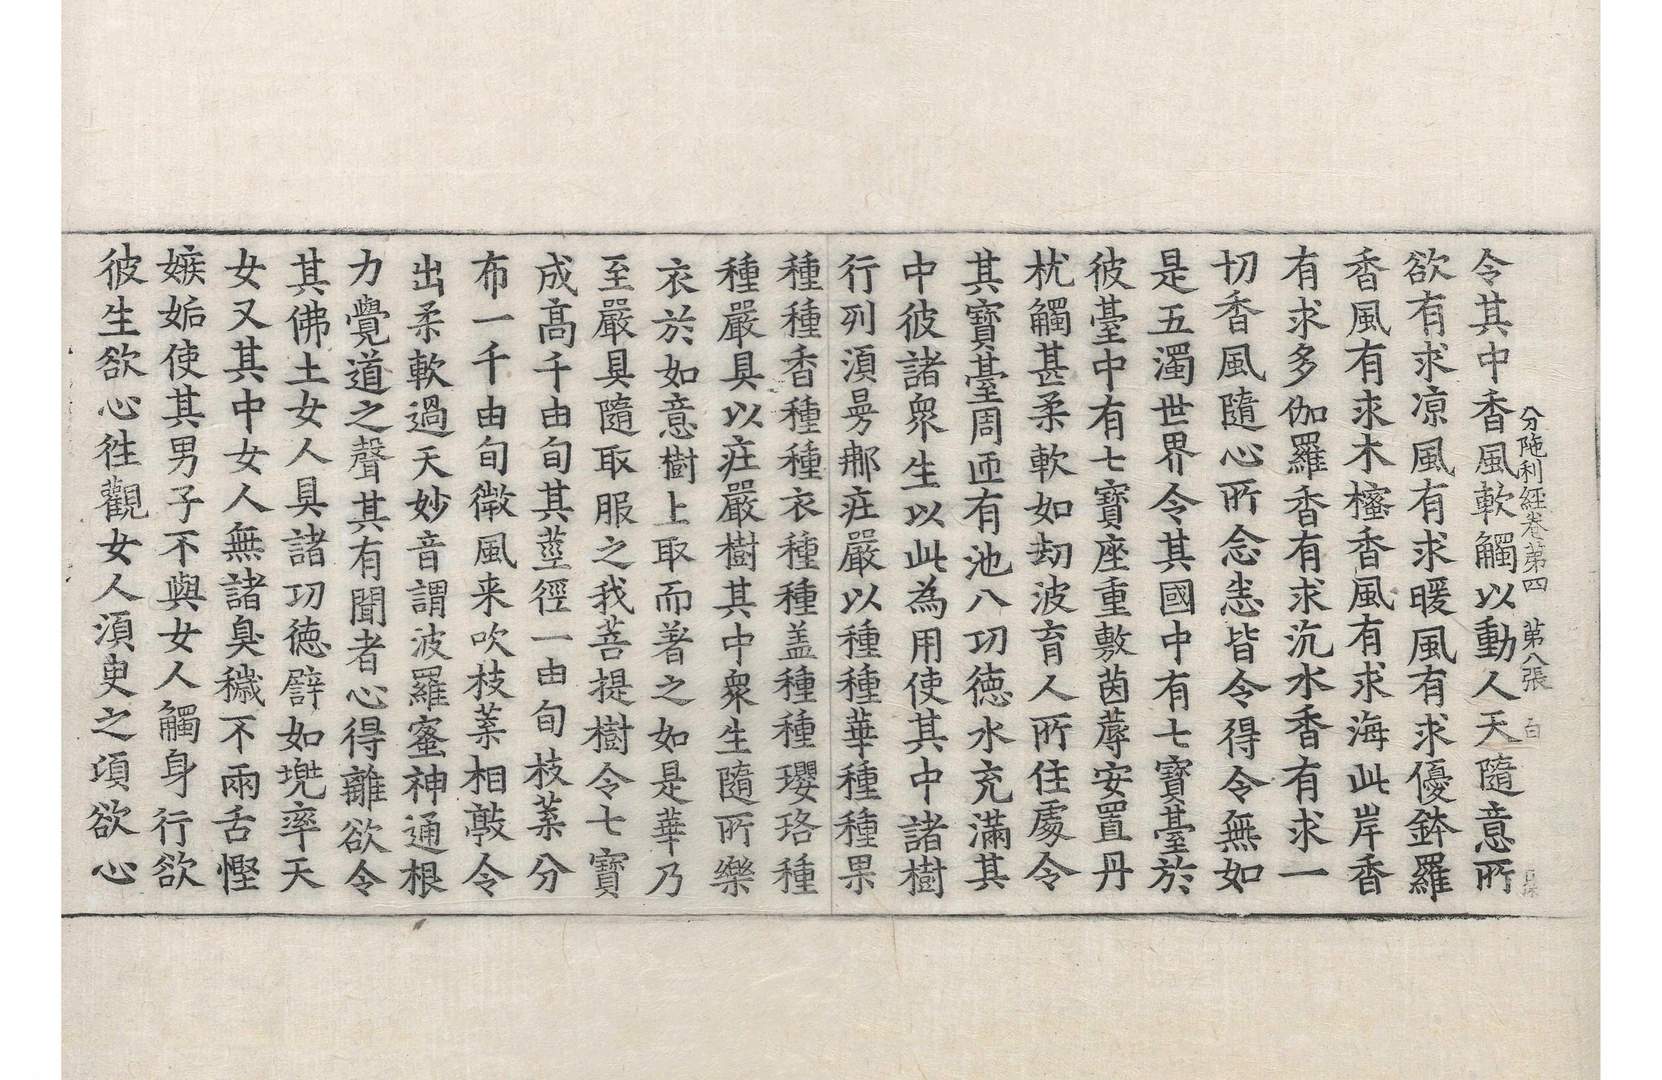 分陁利經卷第四　第八張　白
令其中香風軟觸以動人天隨意所
欲有求凉風有求暖風有求優鉢羅
香風有求木櫁香風有求海此岸香
有求多伽羅香有求沉水香有求一
切香風隨心所念恚皆令得令無如
是五濁世界令其國中有七寶臺於
彼臺中有七寶座重敷茵蓐安置丹
枕觸甚柔軟如劫波育人所住處令
其寶臺周迊有池八功徳水充滿其
中彼諸衆生以此為用使其中諸樹
行列湏曼那莊嚴以種種華種種果
種種香種種衣種種盖種種瓔珞種
種嚴具以莊嚴樹其中衆生隨所樂
衣於如意樹上取而著之如是華乃
至嚴具隨取服之我菩提樹令七寶
成髙千由旬其莖徑一由旬枝葉分
布一千由旬微風来吹枝葉相敲令
出柔軟過天妙音謂波羅蜜神通根
力覺道之聲其有聞者心得離欲令
其佛土女人具諸功德譬如兠率天
女又其中女人無諸臭穢不兩舌慳
嫉妬使其男子不與女人觸身行欲
彼生欲心往觀女人湏臾之頃欲心